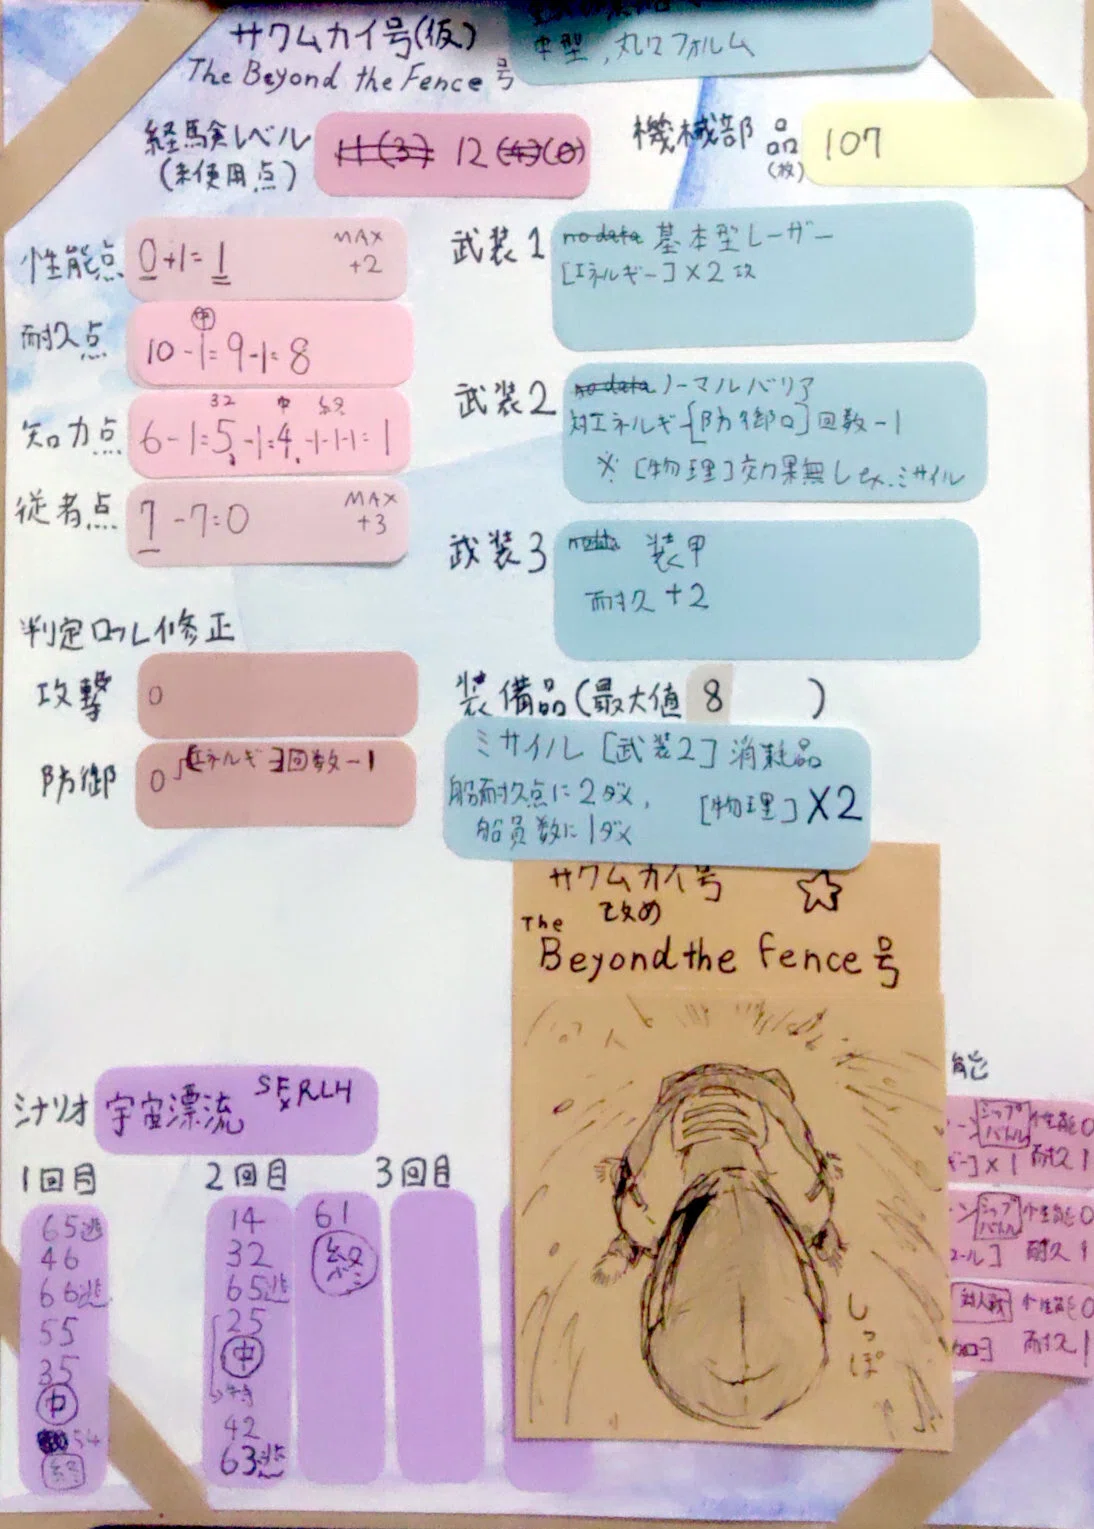 サワムカイ号(仮)
The Beyond the Fence号
中型,丸いフォルム
経験レベル
(未使用点)
11(3) 12(4)(0)
機械部品
(枚)
107
性能点
0+1=1
MAX
+2
耐久点
中
10-1=9-1=8
知力点
32 中 終
6-1=5-1=4-1-1-1=1
従者点
7-7=0
MAX
+3
判定ロール修正
攻撃
0
防御
0
[エネルギー]回数-1
武装1
no data 基本型レーザー
[エネルギー]×2攻
武装2
no data ノーマルバリア
対エネルギー[防御ロ]回数-1
※[物理]効果無し ex.ミサイル
武装3
no data 装甲
耐久+2
装備品(最大値 8 )
ミサイル[武装2]消耗品
船耐久点に2ダメ,
船員数に1ダメ
[物理]×2
サワムカイ号
改め
☆
The
Beyond the Fence号
しっぽ
シナリオ
宇宙漂流
SFxRLH
1回目
65逃
46
66逃
55
35
中
54
終
2回目
14
32
65逃
25
中
特
42
63逃
61
終
3回目
能
シップ
バトル
性能0
]×1
耐久1
シップ
バトル
性能0
ール]
耐久1
対人戦
性能0
耐久1